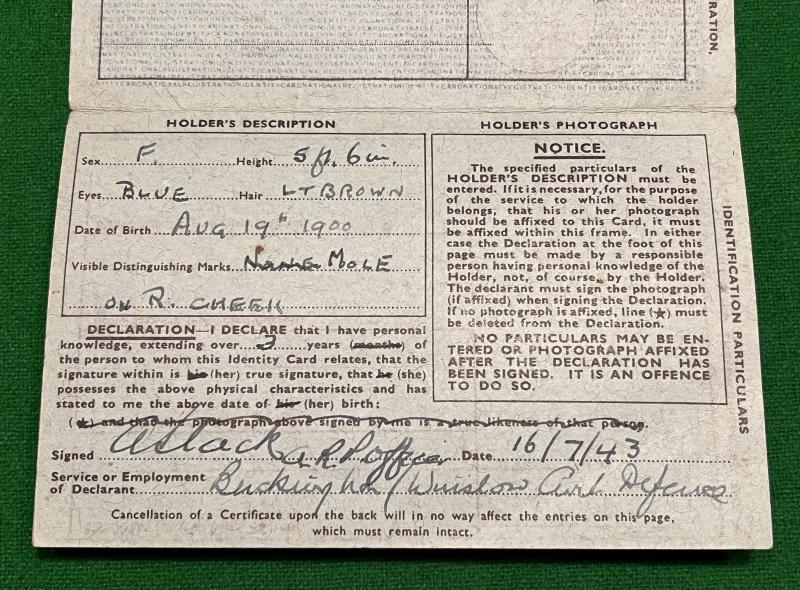 RATION.
HOLDER'S DESCRIPTION
Sex F. Height 5 ft. 6 in.
Eyes BLUE Hair LT BROWN
Date of Birth AUG 19th 1900
Visible Distinguishing Marks NONE MOLE
ON R. CHEEK
DECLARATION—I DECLARE that I have personal
knowledge, extending over 3 years (months) of
the person to whom this Identity Card relates, that the
signature within is his (her) true signature, that he (she)
possesses the above physical characteristics and has
stated to me the above date of his (her) birth:
(★) and that the photograph above signed by me is a true likeness of that person.
Signed A Slack A.R.P. Officer Date 16/7/43
Service or Employment
of Declarant Buckingham/Winslow Civil Defence
Cancellation of a Certificate upon the back will in no way affect the entries on this page,
which must remain intact.
HOLDER'S PHOTOGRAPH
NOTICE.
The specified particulars of the
HOLDER'S DESCRIPTION must be
entered. If it is necessary, for the purpose
of the service to which the holder
belongs, that his or her photograph
should be affixed to this Card, it must
be affixed within this frame. In either
case the Declaration at the foot of this
page must be made by a responsible
person having personal knowledge of the
Holder, not, of course, by the Holder.
The declarant must sign the photograph
(if affixed) when signing the Declaration.
If no photograph is affixed, line (★) must
be deleted from the Declaration.
NO PARTICULARS MAY BE EN-
TERED OR PHOTOGRAPH AFFIXED
AFTER THE DECLARATION HAS
BEEN SIGNED. IT IS AN OFFENCE
TO DO SO.
IDENTIFICATION PARTICULARS